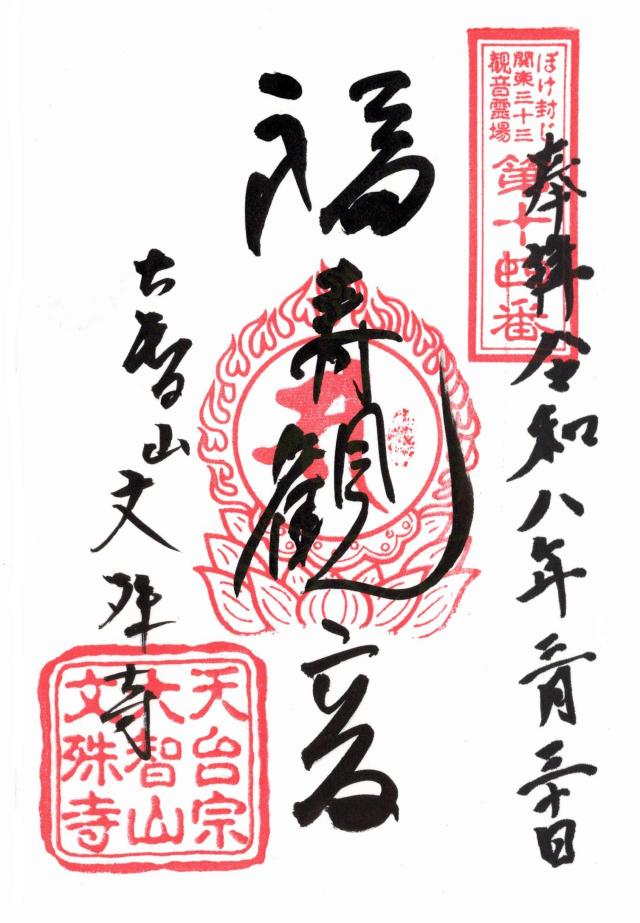 ぼけ封じ
関東三十三
観音靈場
第十四番
奉拝 令和八年三月三十日
福寿観音
大智山 文殊寺
天台宗
大智山
文殊寺